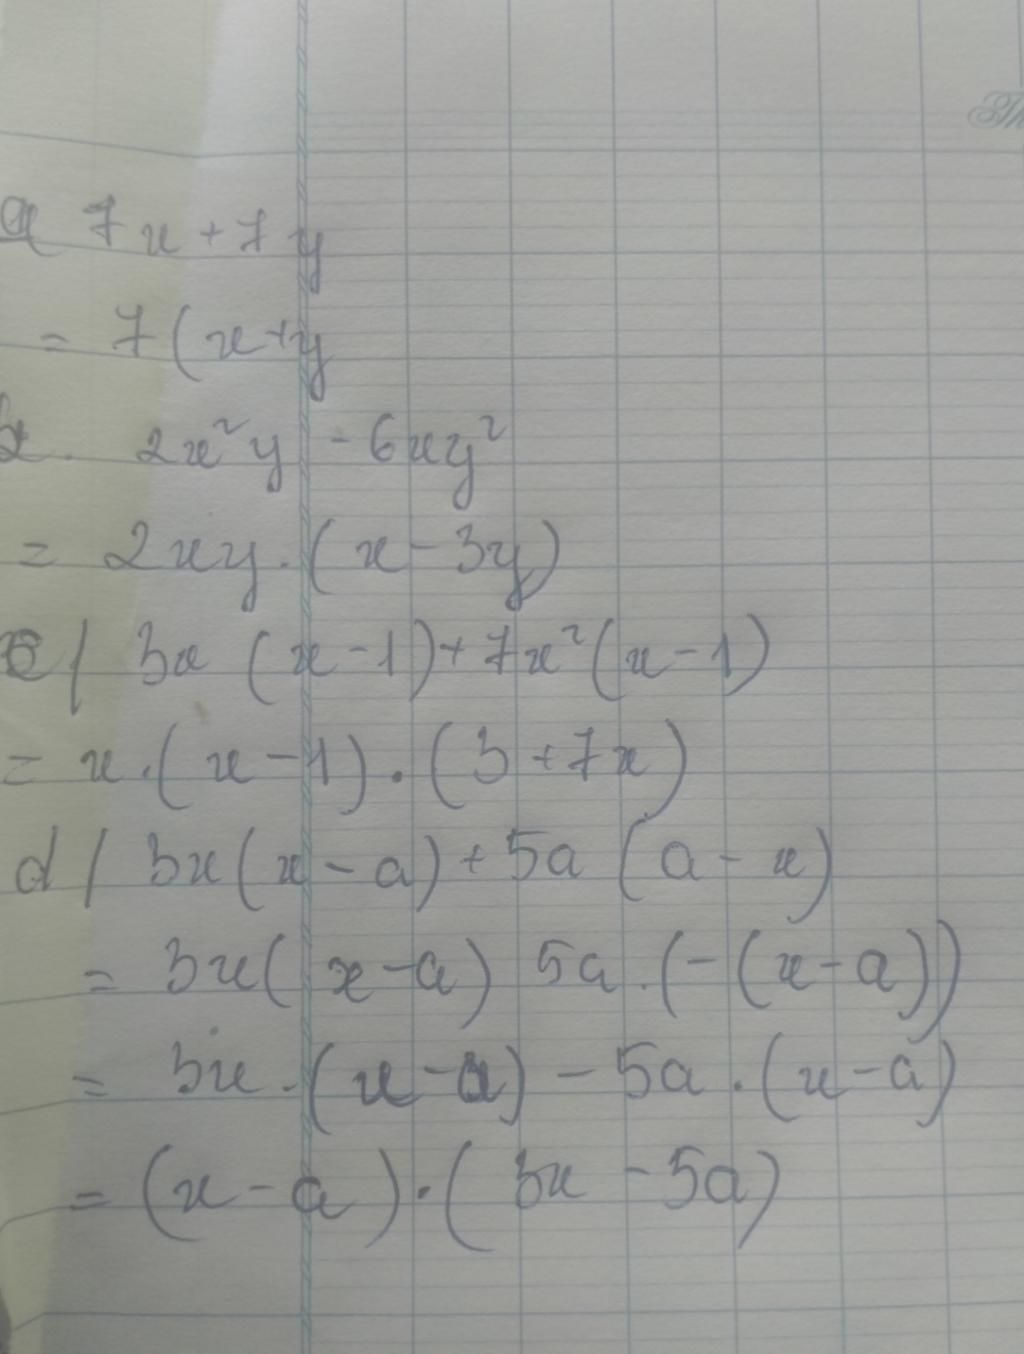 a 7x + 7y
= 7(x+y
b. 2x²y - 6xy²
= 2xy.(x - 3y)
c/ 3x (x-1) + 7x²(x-1)
= x.(x-1).(3+7x)
d/ 3x(x-a) + 5a (a-x)
= 3x(x-a) 5a.(-(x-a))
= 3x.(x-a) - 5a.(x-a)
= (x-a).(3x-5a)